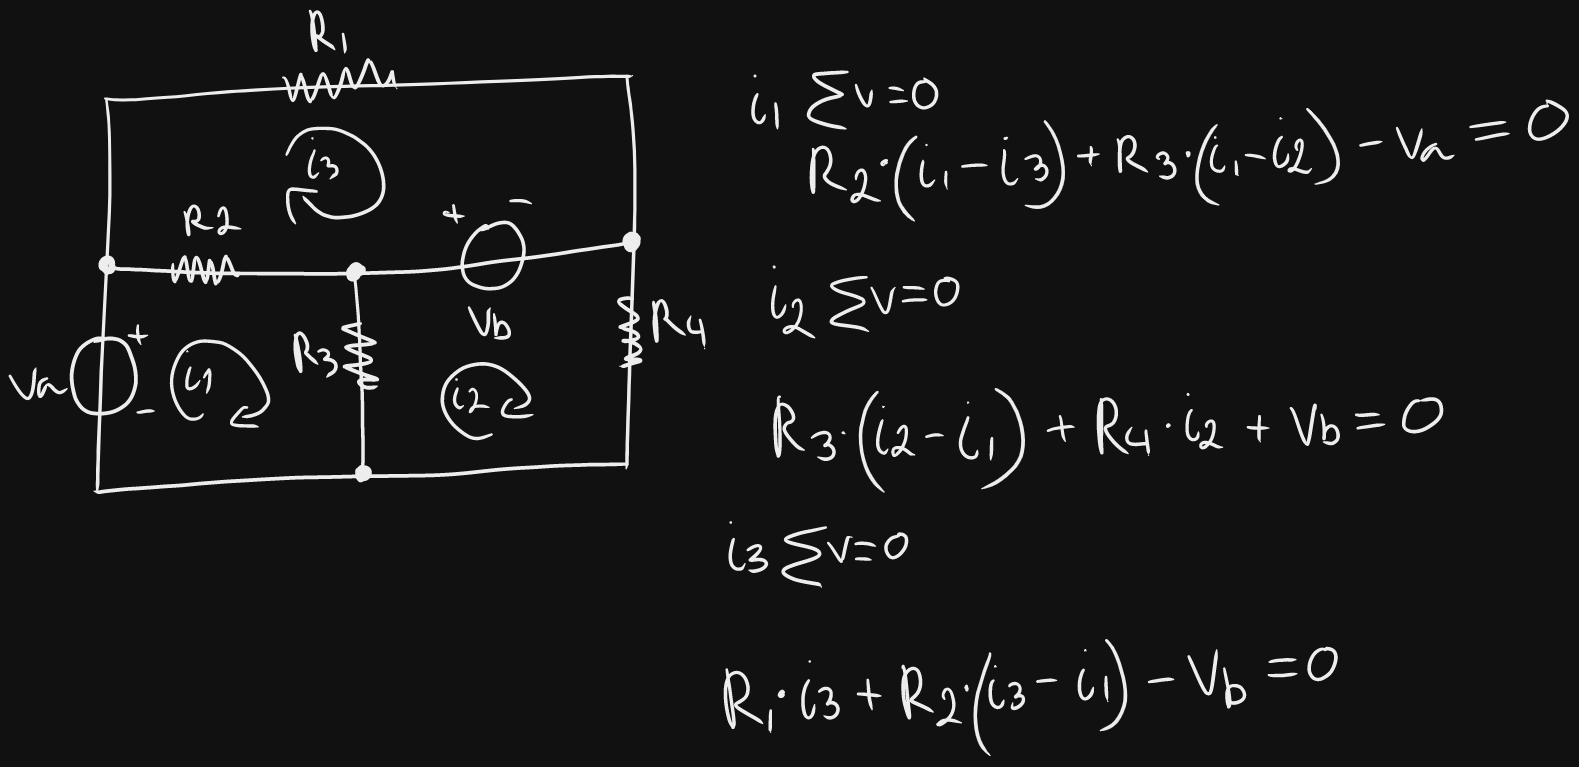 R1
i3
R2
+ -
Vb
Va
+
-
i1
R3
i2
R4
i1 ΣV=0
R2·(i1-i3)+R3·(i1-i2)-Va=0
i2 ΣV=0
R3·(i2-i1)+R4·i2+Vb=0
i3 ΣV=0
R1·i3+R2·(i3-i1)-Vb=0